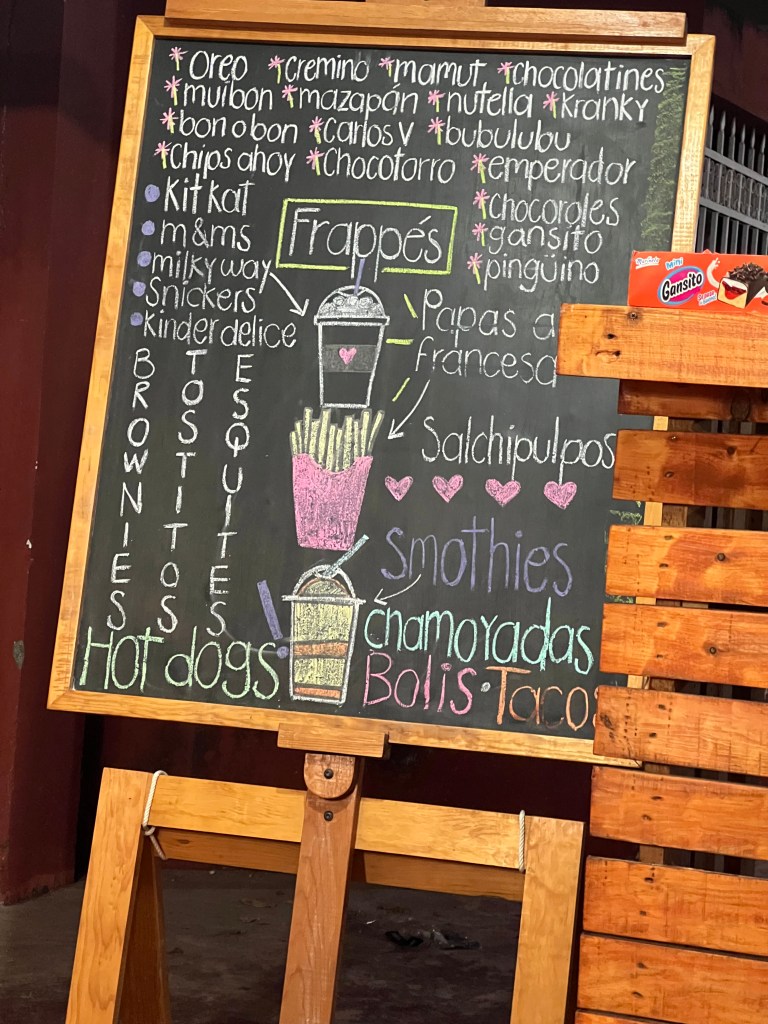 *Oreo *cremino *mamut *chocolatines
*muibon *mazapán *nutella *Kranky
*bon o bon *Carlos V *bubulubu
*Chips ahoy *Chocotorro *emperador
*chocoroles
*gansito
*pingüino
• Kit Kat
• m&ms
• milky way
• Snickers
• Kinder delice
Frappés
Papas a
francesa
Salchipulpos
BROWNIES
TOSTITOS
ESQUITES
Smothies
chamoyadas
Hot dogs
Bolis • Tacos
mini
Gansito